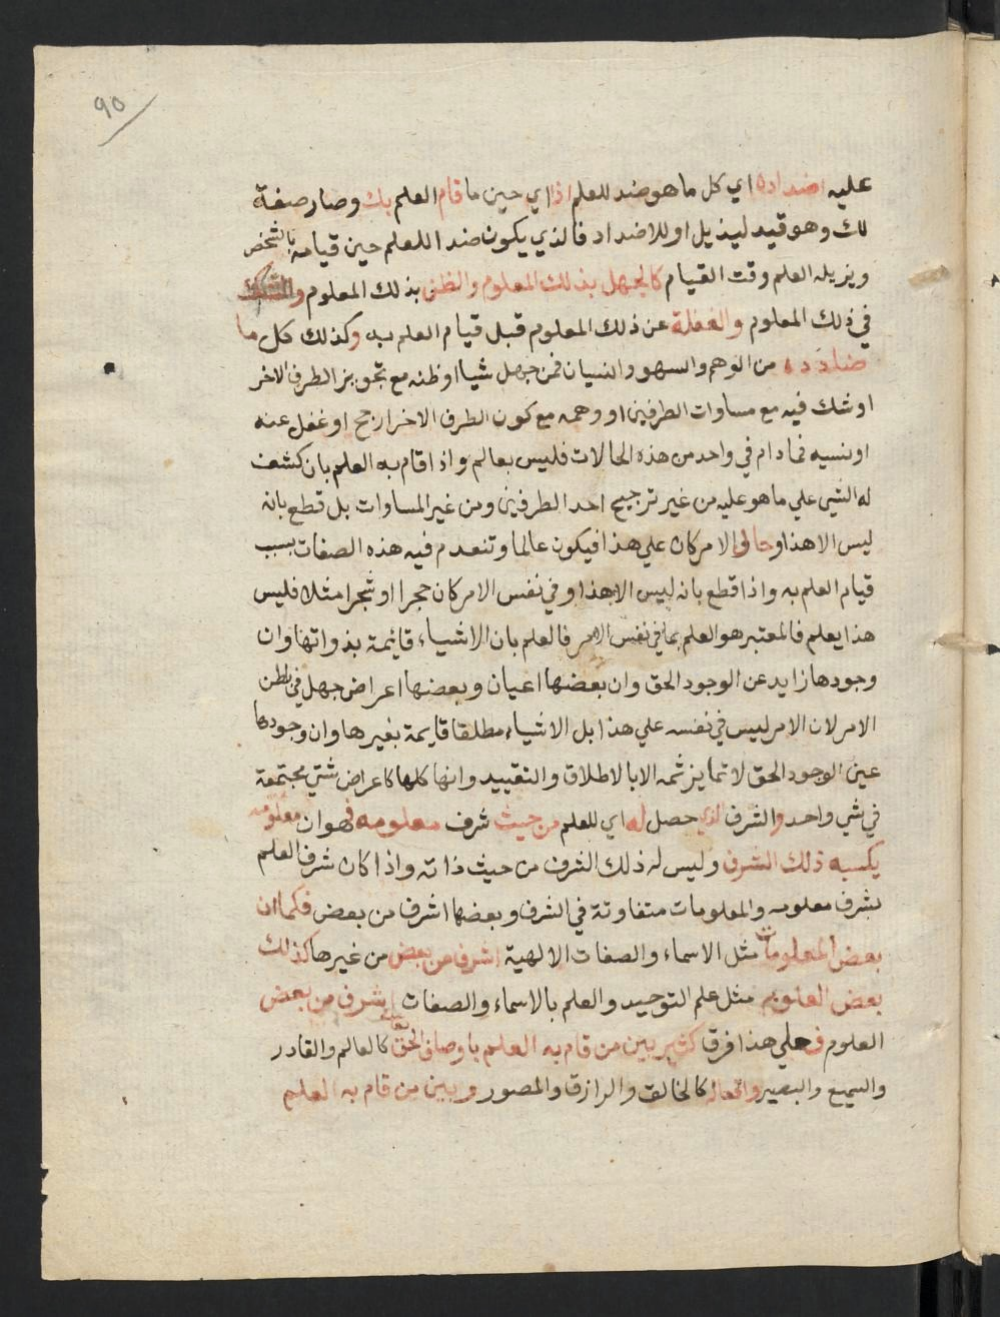 ٩٥
عليه اضداده اي كل ما هو ضد للعلم اذا اي حين ما قام العلم بك وصار صفة
لك وهو قيد ليذيل او للاضداد فالذي يكون ضد اللعلم حين قيامه بالشخص
ويزيله العلم وقت القيام كالجهل بذلك المعلوم والظن بذلك المعلوم والشك
في ذلك المعلوم والغفلة عن ذلك المعلوم قبل قيام العلم به وكذلك كل ما
ضادده من الوهم والسهو والنسيان فمن جهل شيا او ظنه مع تجويز الطرف الاخر
او شك فيه مع مساوات الطرفين او وهمه مع كون الطرف الاخر ارجح او غفل عنه
او نسيه فما دام في واحد من هذه الحالات فليس بعالم واذا قام به العلم بان كشف
له الشي علي ما هو عليه من غير ترجيح احد الطرفين ومن غير المساوات بل قطع بانه
ليس الا هذا و الامر كان علي هذا فيكون عالما وتنعدم فيه هذه الصفات بسبب
قيام العلم به واذا قطع بانه ليس الا هذا وفي نفس الامر كان حجرا او شجرا مثلا فليس
هذا يعلم فالمعتبر هو العلم بما في نفس الامر فالعلم بان الاشياء قائمة بذواتها وان
وجودها زايد عن الوجود الحق وان بعضها اعيان وبعضها اعراض جهل في بطن
الامر لان الامر ليس في نفسه علي هذا بل الاشياء مطلقا قايمة بغيرها وان وجودها
عين الوجود الحق لا تمايز ثمه الا بالاطلاق والتقييد وانها كلها كاعراض شتي مجتمعة
في شي واحد والشرف الذي حصل له اي للعلم من حيث شرف معلومه فهو ان معلومه
يكسبه ذلك الشرف وليس له ذلك الشرف من حيث ذاته واذا كان شرف العلم
بشرف معلومه والمعلومات متفاوتة في الشرف وبعضها اشرف من بعض فكما ان
بعض المعلومات مثل الاسماء والصفات الالهية اشرف من بعض من غيرها كذلك
بعض العلوم مثل علم التوحيد والعلم بالاسماء والصفات اشرف من بعض
العلوم فعلي هذا فرق كثير بين من قام به العلم باوصاف الحق تعالي كالعالم والقادر
والسميع والبصير وافعاله كالخالق والرازق والمصور وبين من قام به العلم